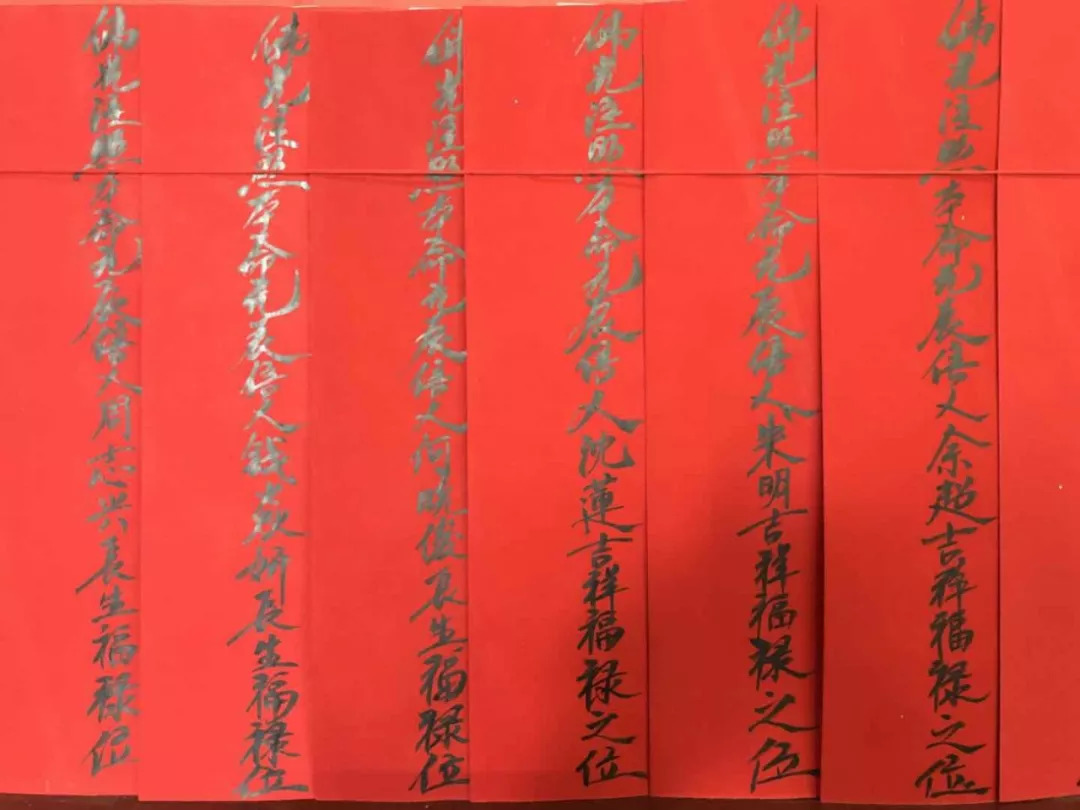 佛光注照本命元辰信人余超吉祥福禄之位
佛光注照本命元辰信人朱明吉祥福禄之位
佛光注照本命元辰信人沈蓮吉祥福禄之位
佛光注照本命元辰信人何晓俊长生福禄位
佛光注照本命元辰信人钱妍长生福禄位
佛光注照本命元辰信人周志兴长生福禄位